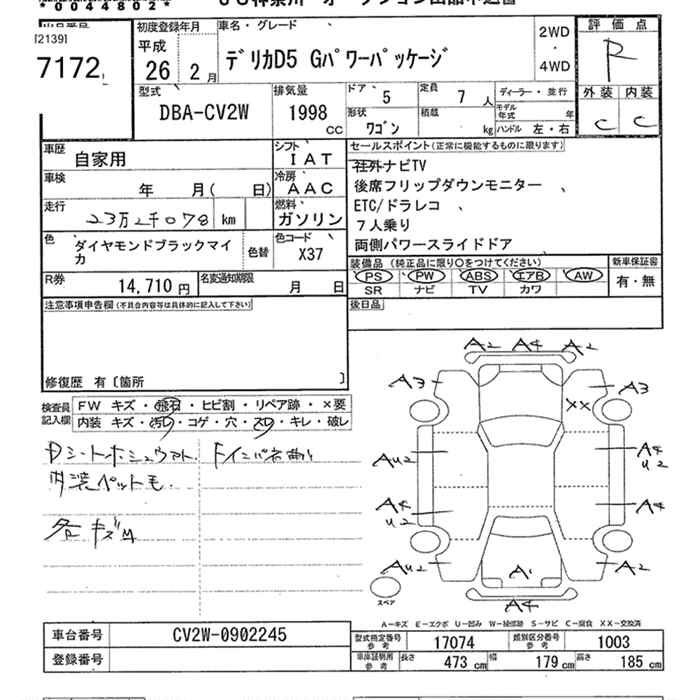 *0044802*
[2139]
7172
初度登録年月
平成
26 2月
車名・グレード
デリカD5 Gパワーパッケージ
2WD
・
4WD
評価点
R
外装 内装
C C
型式
DBA-CV2W
排気量
1998
CC
ドア
5
定員
7人
形状
ワゴン
積載
kg
ディーラー・並行
モデル年式 年
ハンドル 左・右
車歴
自家用
シフト
IAT
車検
年 月( 日)
冷房
AAC
走行
23万2千078 km
燃料
ガソリン
色
ダイヤモンドブラックマイカ
色替
色コード
X37
R券
14,710円
名変通知期限
月 日
セールスポイント(正常に機能するものに限ります)
社外ナビTV
後席フリップダウンモニター 、
ETC/ドラレコ 、
7人乗り
両側パワースライドドア
装備品(純正品に限り○をつけてください)
PS PW ABS エアB AW
SR ナビ TV カワ
新車保証書
有・無
後日品
注意事項申告欄(不具合内容等は具体的に記入して下さい)
修復歴 有〔箇所 〕
検査員記入欄
FW キズ・飛石・ヒビ割・リペア跡・×要
内装 キズ・汚レ・コゲ・穴・スレ・キレ・破レ
内装ペットモ
各キズU
A2 A4 A2
A3 A3
XX
AU2 A4 U2
A4 U2 A4
AU2 A2
A4
スペア
A-キズ E-エクボ U-凹み W-補修跡 S-サビ C-腐食 XX-交換済
車台番号
CV2W-0902245
登録番号
型式指定番号 参考
17074
類別区分番号 参考
1003
車庫証明用 参考
長さ 473cm 幅 179cm 高さ 185cm